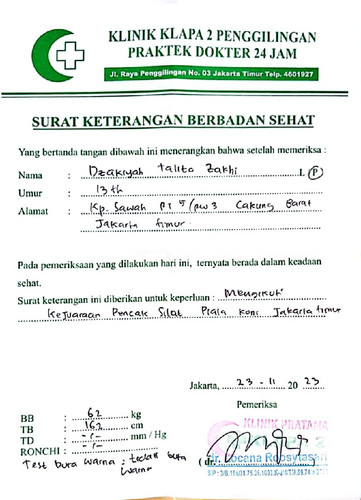 KLINIK KLAPA 2 PENGGILINGAN
PRAKTEK DOKTER 24 JAM
Jl. Raya Penggilingan No. 03 Jakarta Timur Telp. 4601927
SURAT KETERANGAN BERBADAN SEHAT
Yang bertanda tangan dibawah ini menerangkan bahwa setelah memeriksa :
Nama : Dzakiyah Talita Zakhi L P
Umur : 13 th
Alamat : Kp. Sawah RT 5 / RW 3 Cakung Barat
Jakarta timur.
Pada pemeriksaan yang dilakukan hari ini, ternyata berada dalam keadaan
sehat.
Surat keterangan ini diberikan untuk keperluan : Mengikuti
Kejuaraan Pencak Silat Piala Koni Jakarta timur
Jakarta, 23 - 11 20 23
Pemeriksa
BB : 62 kg
TB : 162 cm
TD : - , - mm / Hg
RONCHI : - , -
Test buta warna : tidak buta
warna
KLINIK PRATAMA